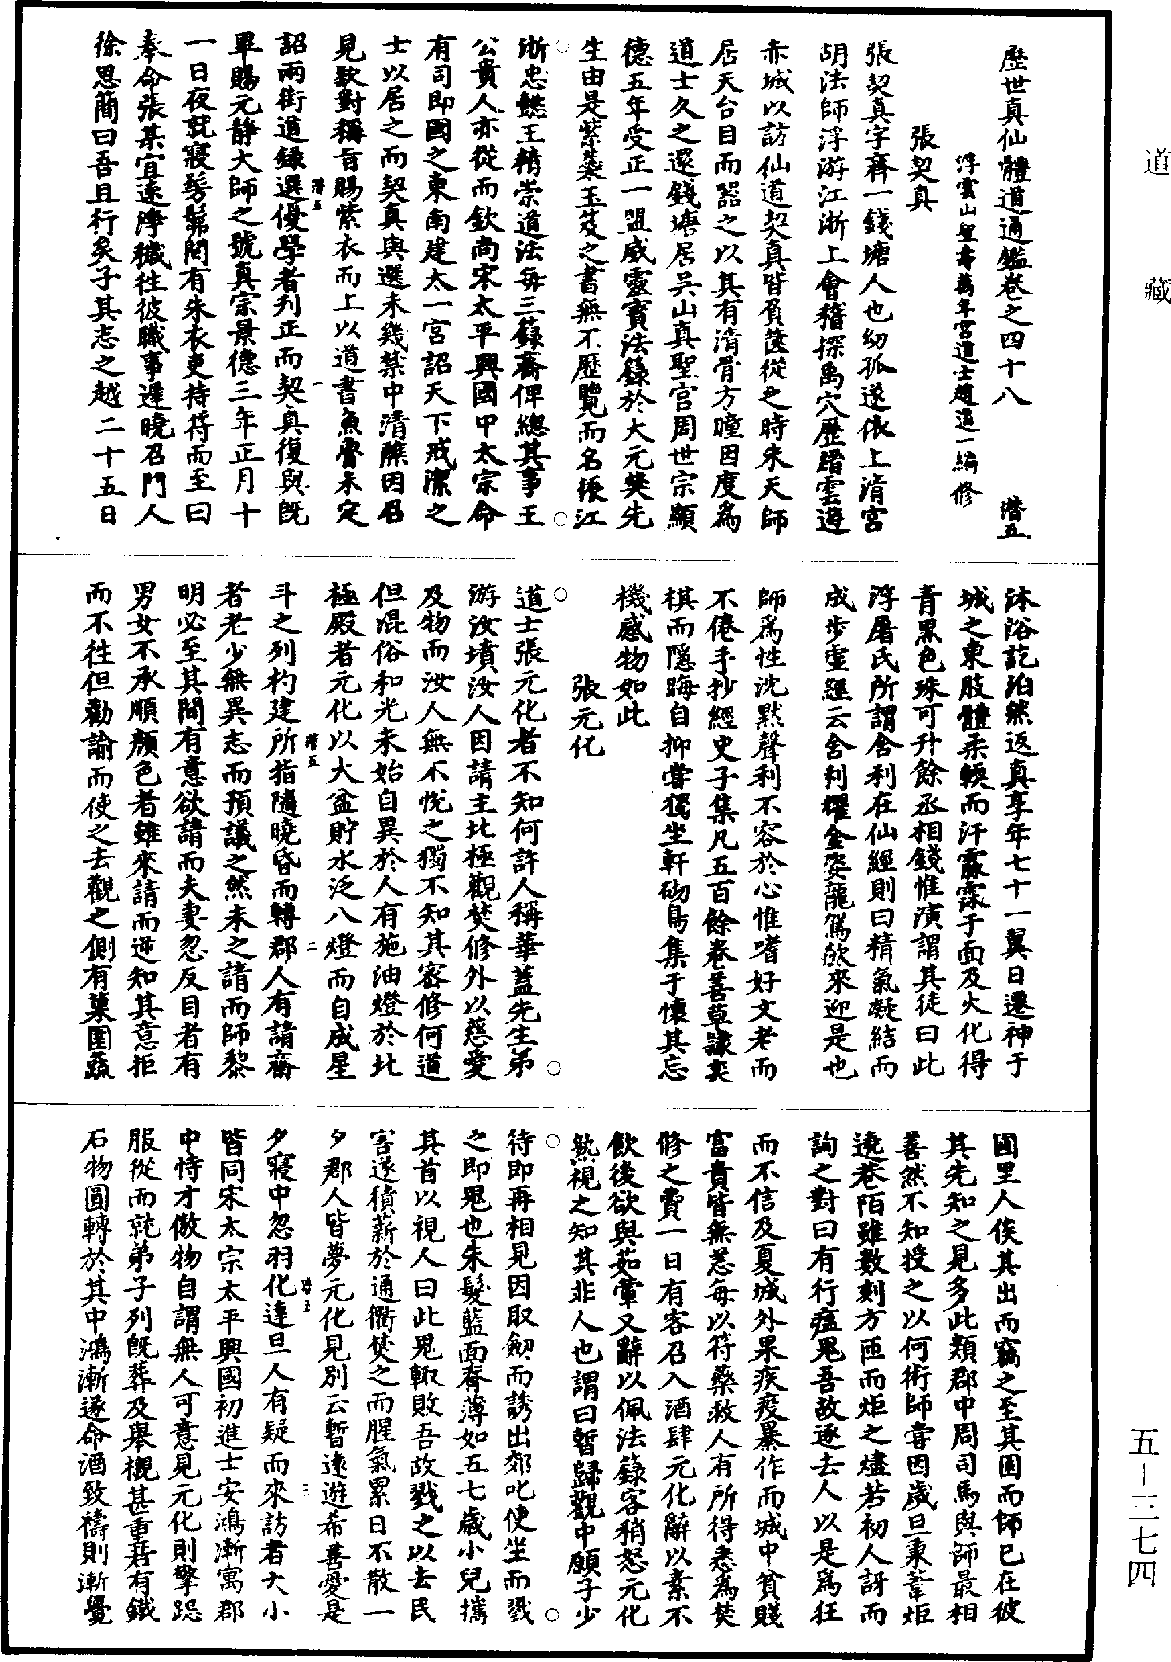 道藏
歷世真仙體道通鑑卷之四十八 潛五
浮雲山聖壽萬年宮道士趙道一編修
張契真
張契真字齊一錢塘人也幼孤遂依上清宮
胡法師浮游江浙上會稽探禹穴歷踏雲海
赤城以訪仙道契真皆負篋從之時朱天師
居天台目而器之以其有清骨方瞳因度為
道士久之還錢塘居吳山真聖宮周世宗顯
德五年受正一盟威靈寶法籙於大元樊先
生由是紫蘂玉笈之書無不歷覽而名振江
浙忠懿王精崇道法每三籙齋俾總其事王
公貴人亦從而欽尚宋太平興國中太宗命
有司即國之東南建太一宮詔天下戒潔之
士以居之而契真與選未幾禁中清醮因召
見欵對稱旨賜紫衣而上以道書魚魯未定
詔兩街道錄選優學者刋正而契真復與既
畢賜元靜大師之號真宗景德三年正月十
一日夜就寢髣髴間有朱衣吏持符而至曰
奉命張某宜速淨穢往彼職事遲曉召門人
徐思簡曰吾且行矣子其志之越二十五日
沐浴訖泊然返真享年七十一翼日遷神于
城之東肢體柔輭而汗霡霂于面及火化得
青黑色珠可升餘丞相錢惟演謂其徒曰此
浮屠氏所謂舍利在仙經則曰精氣凝結而
成步虛經云舍利耀金姿龍駕欻來迎是也
師為性沈默聲利不容於心惟嗜好文老而
不倦手抄經史子集凡五百餘卷善草隸奕
棋而隱晦自抑嘗獨坐軒砌鳥集于懷其忘
機感物如此
張元化
道士張元化者不知何許人稱華蓋先生弟
游汝墳汝人因請主北極觀焚修外以慈愛
及物而汝人無不悅之獨不知其密修何道
但混俗和光未始自異於人有施油燈於北
極殿者元化以大盆貯水泛八燈而自成星
斗之列杓建所指隨曉昏而轉郡人有請齋
者老少無異志而預議之然未之請而師黎
明必至其間有意欲請而夫妻忽反目者有
男女不承順顏色者雖來請而逆知其意拒
而不往但勸諭而使之去觀之側有菓園蔬
園里人俟其出而竊之至其園而師已在彼
其先知之見多此類郡中周司馬與師最相
善然不知授之以何術師嘗因歲旦束葦炬
遶巷陌雖數刻方匝而炬之燼若初人訝而
詢之對曰有行瘟鬼吾故逐去人以是為狂
而不信及夏城外果疾疫暴作而城中貧賤
富貴皆無恙每以符藥救人有所得悉為焚
修之費一日有客召入酒肆元化辭以素不
飲後欲與茹葷又辭以佩法籙客稍怒元化
熟視之知其非人也謂曰暫歸觀中願子少
待即再相見因取劒而誘出郊叱使坐而戮
之即鬼也朱髮藍面脊薄如五七歲小兒攜
其首以視人曰此鬼輙敗吾故戮之以去民
害遂積薪於通衢焚之而腥氣累日不散一
夕郡人皆夢元化見別云暫遠遊希善愛是
夕寢中忽羽化達旦人有疑而來訪者大小
皆同宋太宗太平興國初進士安鴻漸寓郡
中恃才傲物自謂無人可意見元化則擎跽
服從而就弟子列既葬及舉櫬甚重若有鐵
石物圓轉於其中鴻漸遂命酒致禱則漸覺
潛五 一
潛五 二
潛五 三
五—三七四